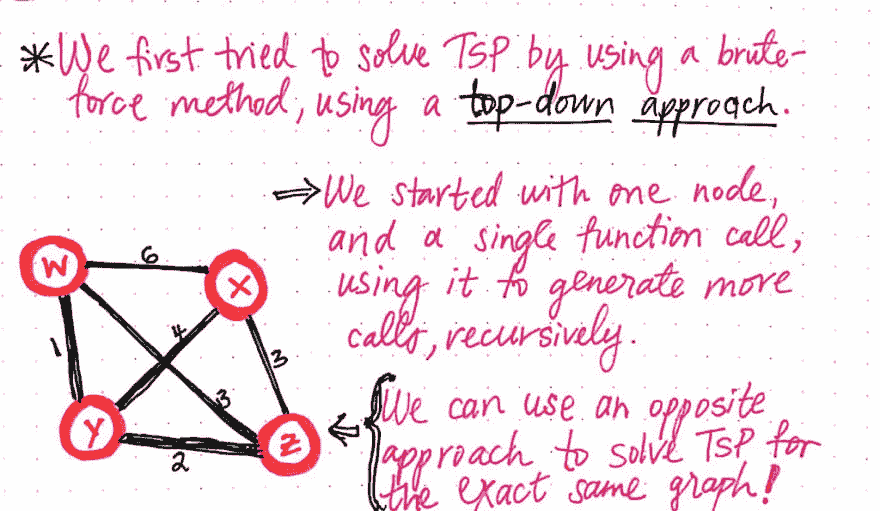 *We first tried to solve TSP by using a brute-
force method, using a top-down approach.
⇒We started with one node,
and a single function call,
using it to generate more
calls, recursively.
W
6
X
1
4
3
3
Y
2
Z
⇐
We can use an opposite
approach to solve TSP for
the exact same graph!